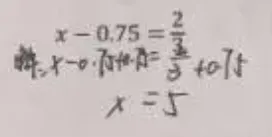 x − 0.75 = 2/3
解: x-0.75+0.75 = 2/3 +0.75
x = 5